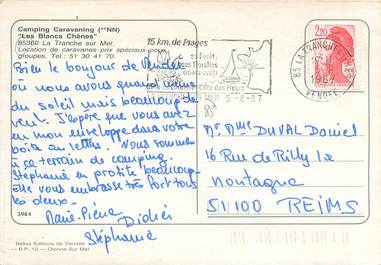 Camping Caravaning (**NN)
"Les Blancs Chênes"
85360 La Tranche sur Mer
Location de caravanes prix spéciaux pour
groupes. Tel.: 51 30 41 70.
Bien le bonjour de Vendée
où nous avons quand même
du soleil mais beaucoup de
vent. J'espère que vous avez
eu mon enveloppe dans votre
boîte au lettres. Nous sommes
à ce terrain de camping.
Stéphanie en profite beaucoup.
Elle vous embrasse très fort tous
les deux.
Marie-Pierre
Didier
Stéphanie
3984
Belles Editions de Vendée
— B.P. 12 — Olonne Sur Mer
15 km. de Plages
sa Forêt,
ses Floralies
(mars-avril)
Côte des Fleurs
5-8-87
85 LA TRANCHE
1987
VENDEE
2,20
Mr Mme DUVAL Daniel
16 Rue de Rilly la
Montagne
51100 REIMS